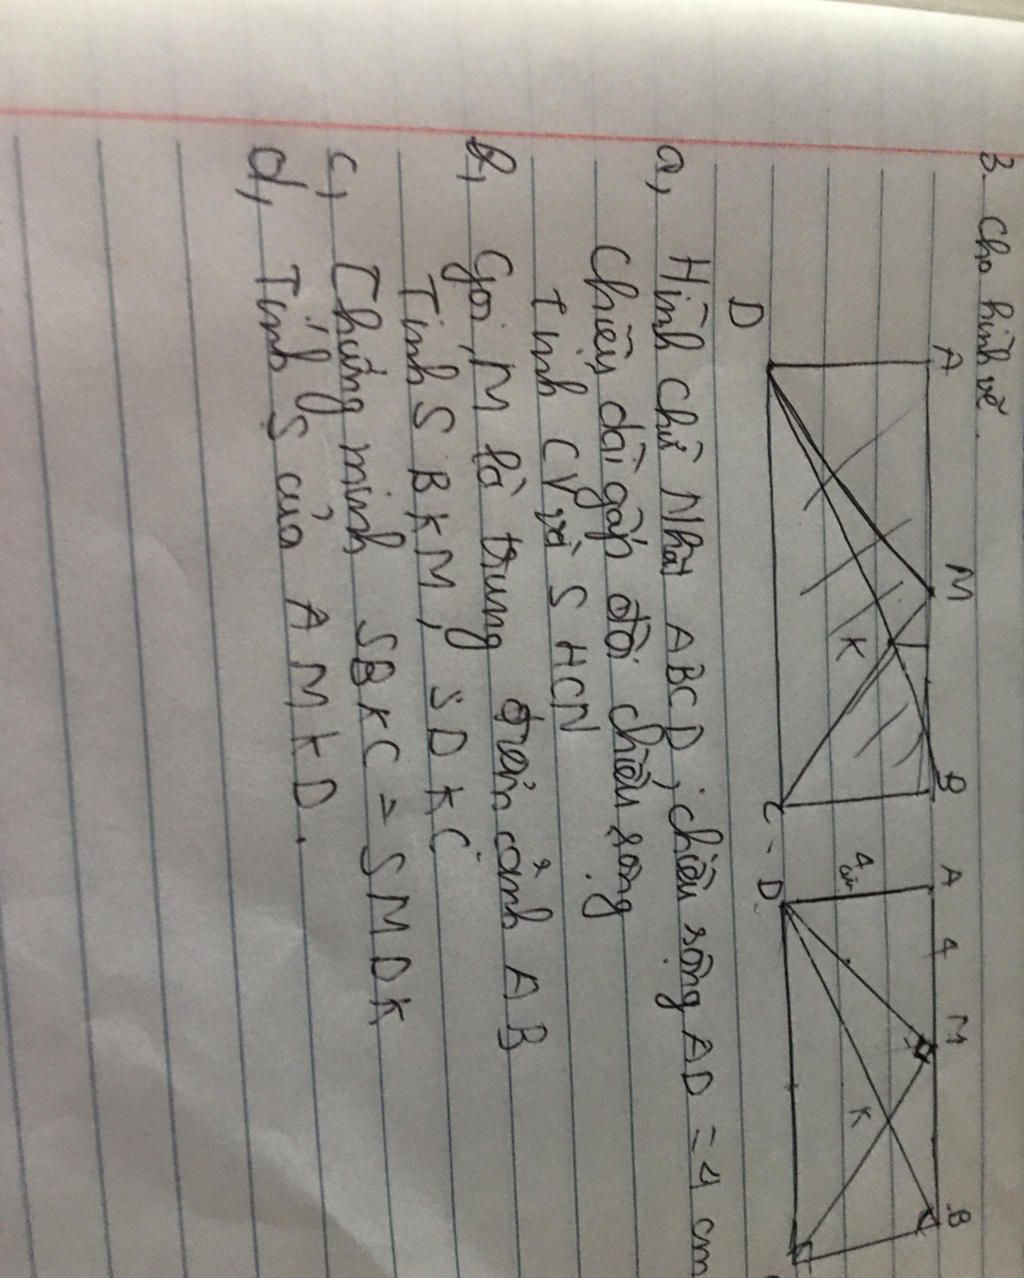 3. Cho hình vẽ.
A M B A 4 M B
4 cm
K K
D C D
a, Hình chữ Nhật ABCD, chiều rộng AD = 4 cm
Chiều dài gấp đôi chiều rộng.
tính CV và S HCN
b, Gọi M là trung điểm cảnh AB
Tính S BKM, S DKC
c, Chứng minh SBKC = SMDK
d, Tính S của AMKD.